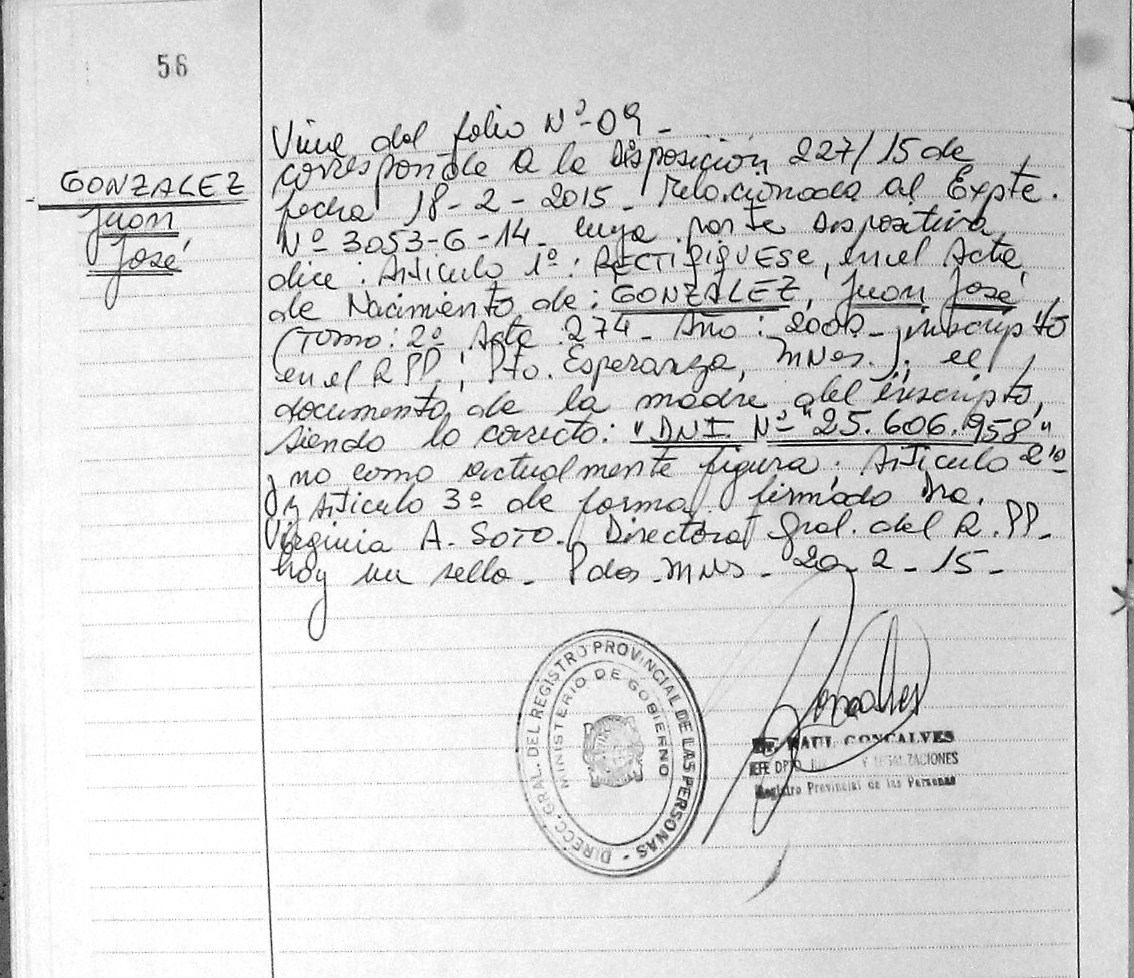 56
GONZALEZ
Juan
José
Viene del folio Nº-09-
corresponde a la Disposición 227/15 de
fecha 18-2-2015- relacionada al Expte.
Nº 3053-G-14- cuya parte dispositiva
dice: Articulo 1º: RECTIFIQUESE, en el Acta
de Nacimiento de: GONZALEZ, Juan José
(Tomo: 2º Acta 274- Año: 2000- inscripto
en el RPP, Pto. Esperanza, Mnes.); el
documento de la madre del inscripto,
siendo lo correcto: "DNI Nº 25.606.958"
y no como actualmente figura. Articulo 2º
y Articulo 3º de forma. firmado Dra.
Virginia A. SOTO. Directora Gral. del R.PP-
hay un sello- Pdas-Mnes- 20-2-15-
DIRECC. GRAL. DEL REGISTRO PROVINCIAL DE LAS PERSONAS -
MINISTERIO DE GOBIERNO
RAUL GONCALVES
JEFE DPTO. Y LEGALIZACIONES
Registro Provincial de las Personas